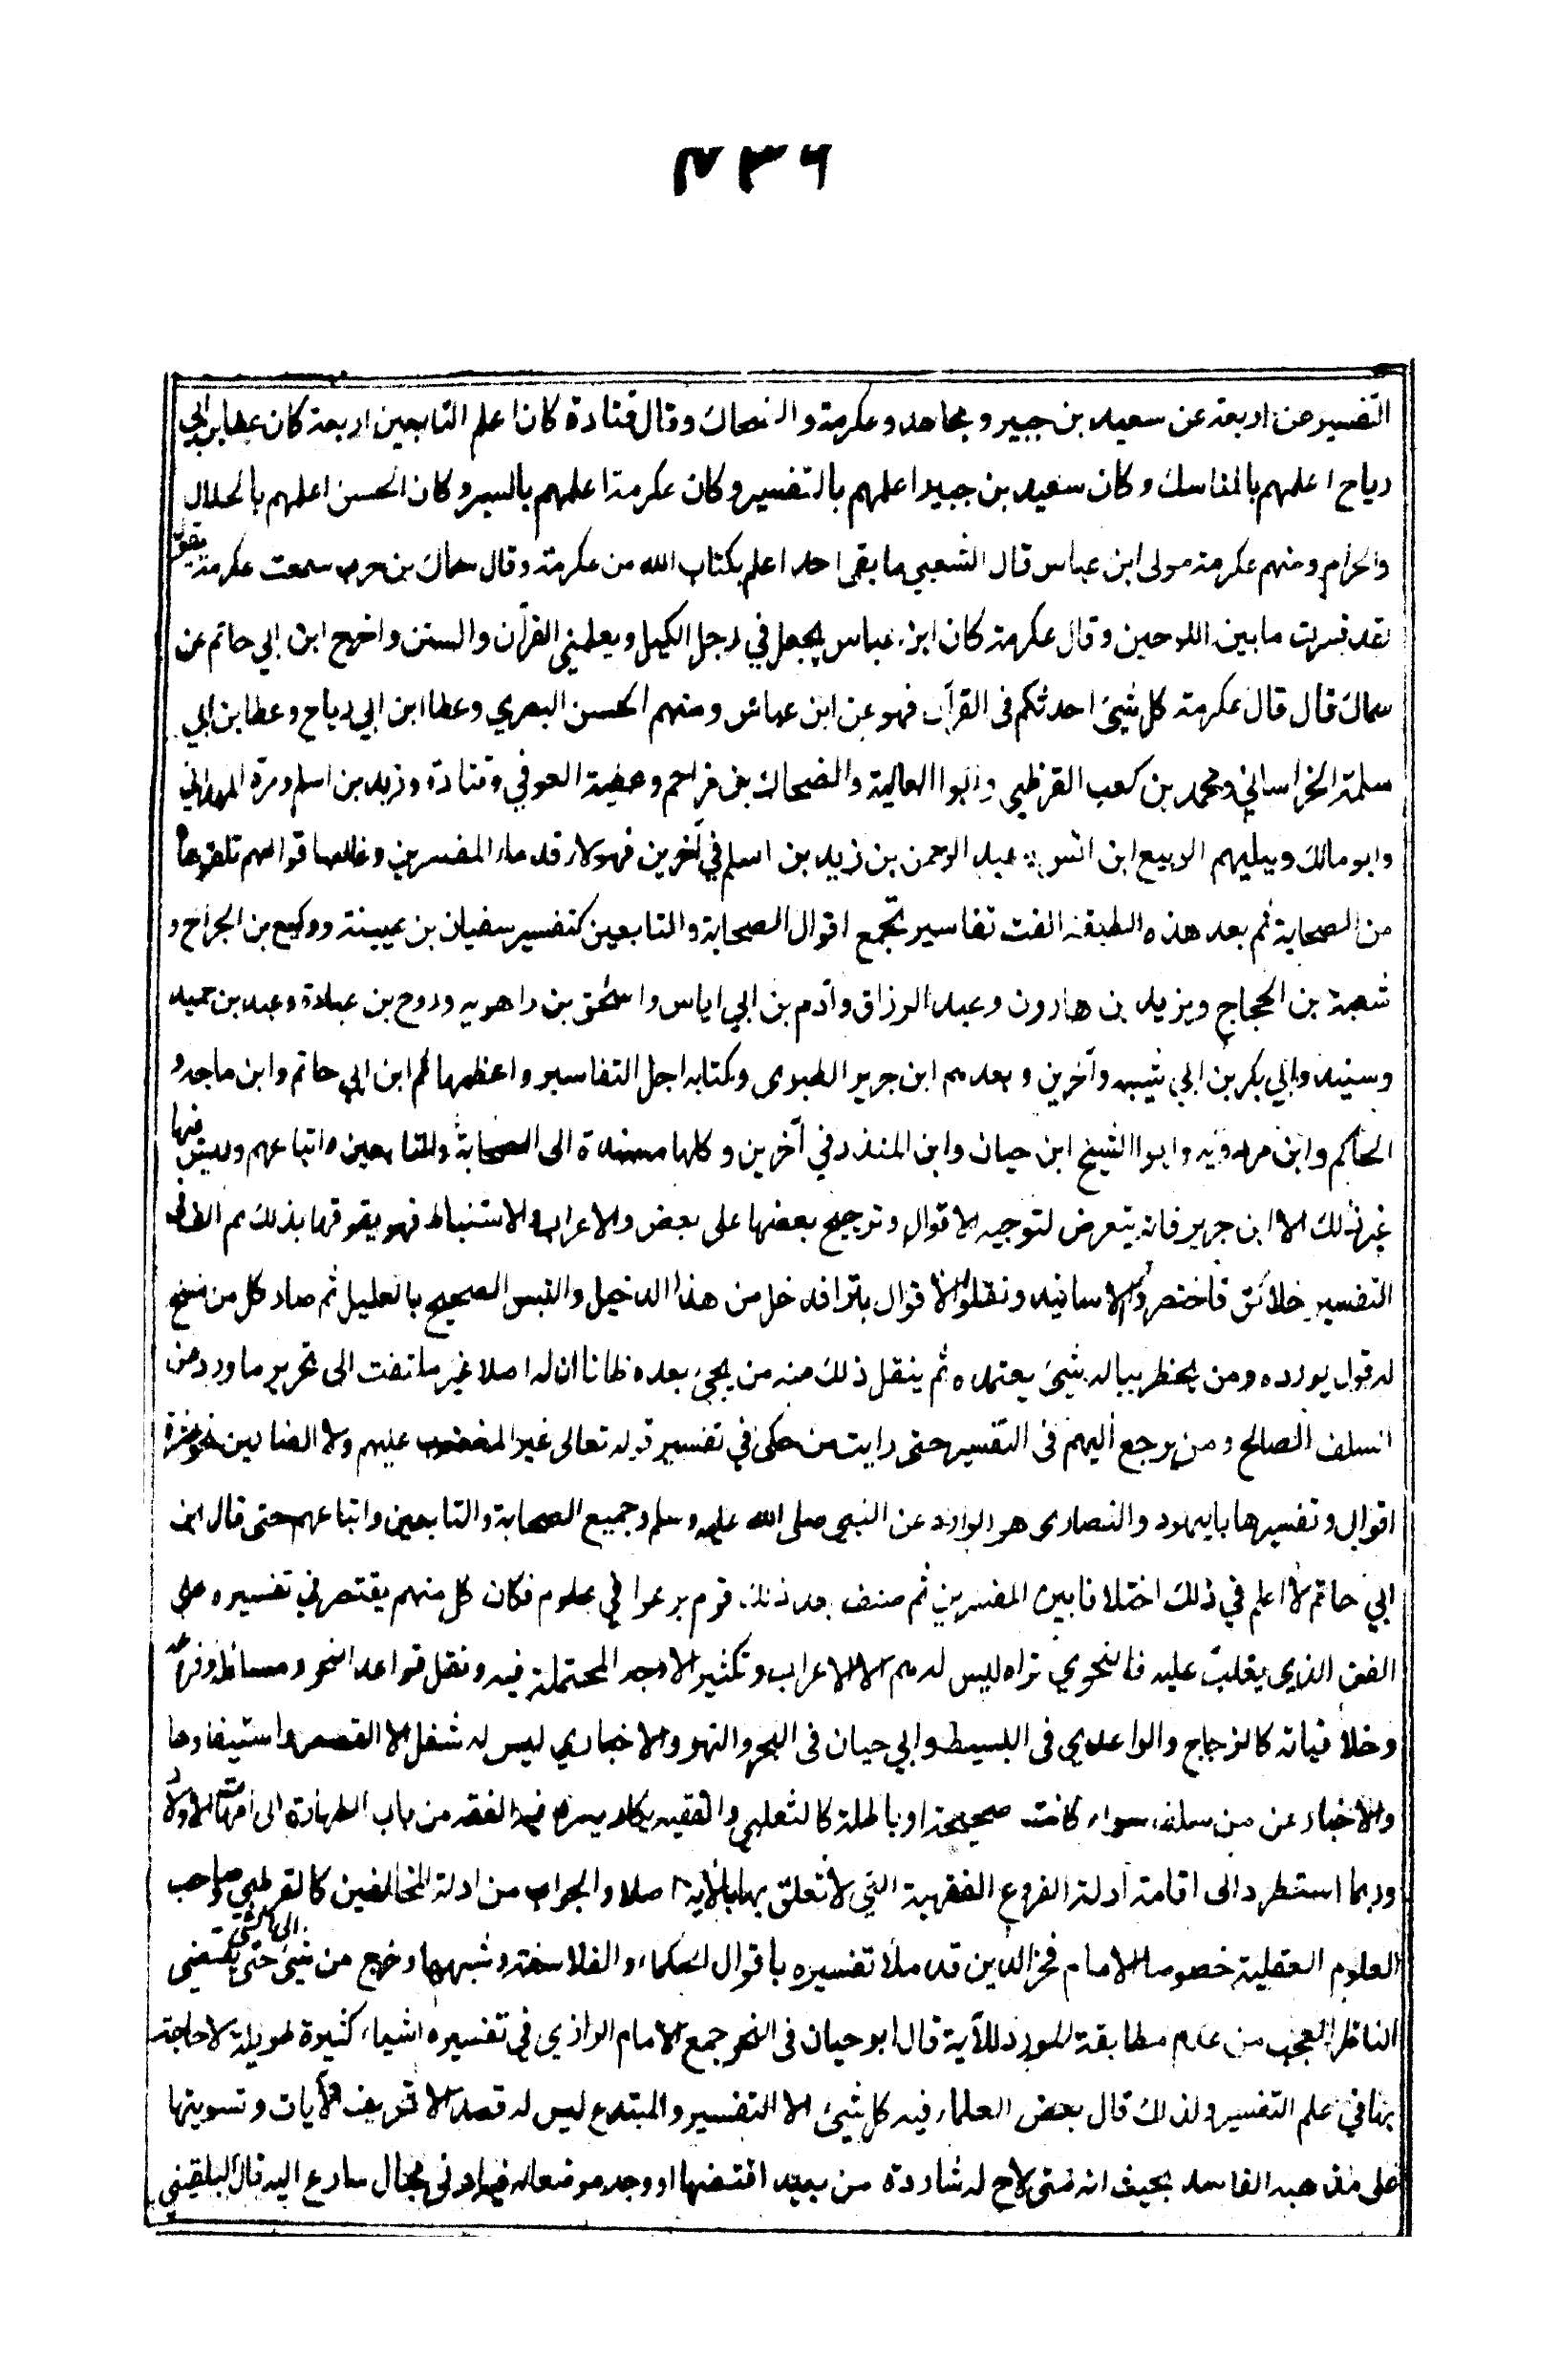 ٤٣٦
التفسير عن اربعة عن سعيد بن جبير و مجاهد و عكرمة و الضحاك و قال قتادة كان اعلم التابعين اربعة كان عطا بن ابي
رباح اعلمهم بالمناسك و كان سعيد بن جبير اعلمهم بالتفسير و كان عكرمة اعلمهم بالسير و كان الحسن اعلمهم بالحلال
والحرام و منهم عكرمة مولى ابن عباس قال الشعبي ما بقى احد اعلم بكتاب الله من عكرمة و قال سماك بن حرب سمعت عكرمة يقول
لقد فسرت ما بين اللوحين و قال عكرمة كان ابن عباس يجعل في رجل الكيل و يعلمني القرآن والسنن و اخرج ابن ابي حاتم عن
سماك قال قال عكرمة كل شيئ احدثكم فى القرآن فهو عن ابن عباس و منهم الحسن البصري و عطا ابن ابي رباح و عطا بن ابي
سلمة الخراساني و محمد بن كعب القرظي و ابوا العالية والضحاك بن مزاحم و عطية العوفي و قتادة و زيد بن اسلم و مرة الهمداني
و ابو مالك و يليهم الربيع ابن انس و عبد الرحمن بن زيد بن اسلم في آخرين فهولاء قدماء المفسرين و غالب اقوالهم تلقوها
من الصحابة ثم بعد هذه الطبقة الفت تفاسير تجمع اقوال الصحابة و التابعين كتفسير سفيان بن عيينة و وكيع بن الجراح و
شعبة بن الحجاج و يزيد بن هارون و عبد الرزاق و آدم بن ابي اياس و اسحق بن راهويه و روح بن عبادة و عبد بن حميد
و سنيد و ابي بكر بن ابي شيبه و آخرين و بعدهم ابن جرير الطبري و كتابه اجل التفاسير و اعظمها ثم ابن ابي حاتم و ابن ماجه و
الحاكم و ابن مردويه و ابوا الشيخ ابن حيان و ابن المنذر في آخرين و كلها مسندة الى الصحابة و التابعين و اتباعهم و ليس فيها
غير ذلك الا ابن جرير فانه يتعرض لتوجيه الاقوال و ترجيح بعضها على بعض و الاعراب و الاستنباط فهو يفوقها بذلك ثم الف فى
التفسير خلائق فاختصروا الاسانيد و نقلوا الاقوال بترا فدخل من هذا الدخيل و التبس الصحيح بالعليل ثم صار كل من سنح
له قول يورده و من يخطر بباله شيئ يعتمده ثم ينقل ذلك منه من يجيء بعده ظانا ان له اصلا غير ملتفت الى تحرير ما ورد عن
السلف الصالح و من يرجع اليهم فى التفسير حتى رايت من حكى في تفسير قوله تعالى غير المغضوب عليهم ولا الضالين نحو عشرة
اقوال و تفسيرها باليهود و النصارى هو الوارد عن النبي صلى الله عليه و سلم و جميع الصحابة و التابعين و اتباعهم حتى قال ابن
ابي حاتم لا اعلم في ذلك اختلافا بين المفسرين ثم صنف بعد ذلك قوم برعوا في علوم فكان كل منهم يقتصر في تفسيره على
الفن الذي يغلب عليه فالنحوي تراه ليس له هم الا الاعراب و تكثير الاوجه المحتملة فيه و نقل قواعد النحو و مسائله و فروعه
و خلافياته كالزجاج والواحدي فى البسيط و ابي حيان فى البحر و النهر و الاخباري ليس له شغل الا القصص و استيفاؤها
والاخبار عن من سلف سواء كانت صحيحة او باطلة كالثعلبي و الفقيه يكاد يسرد فيه الفقه من باب الطهارة الى امهات الاولاد
و ربما استطرد الى اقامة ادلة الفروع الفقهية التي لا تعلق بها بالآية اصلا و الجواب من ادلة المخالفين كالقرطبي و صاحب
العلوم العقلية خصوصا الامام فخر الدين قد ملأ تفسيره باقوال الحكماء و الفلاسفة و شبهها و خرج من شيئ الى شيئ حتى يقضى
الناظر العجب من عدم مطابقة المورد للآية قال ابو حيان فى البحر جمع الامام الرازي في تفسيره اشياء كثيرة طويلة لا حاجة
بها في علم التفسير و لذلك قال بعض العلماء فيه كل شيئ الا التفسير و المبتدع ليس له قصد الا تحريف الآيات و تسويتها
على مذهبه الفاسد بحيث انه متى لاح له شاردة من بعيد اقتنصها او وجد موضعا له فيه ادنى مجال سارع اليه قال البلقيني